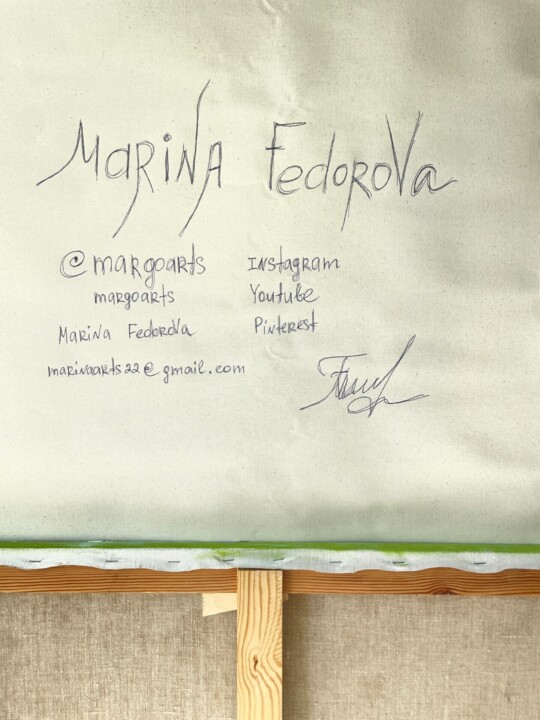 MaRiNA FedoRoVa
@margoarts Instagram
margoarts Youtube
MaRiNa FedoRoVa PinteRest
marinaarts22@gmail.com